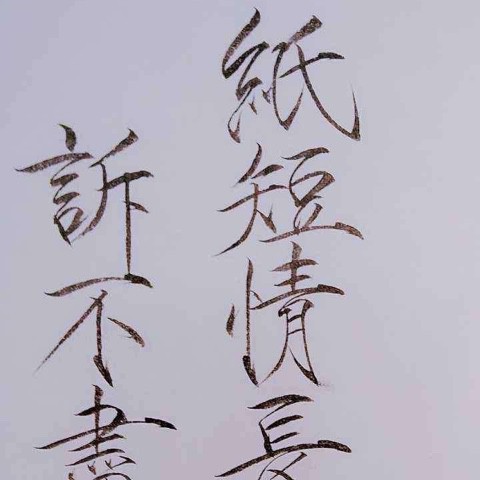 紙短情長
訴不盡